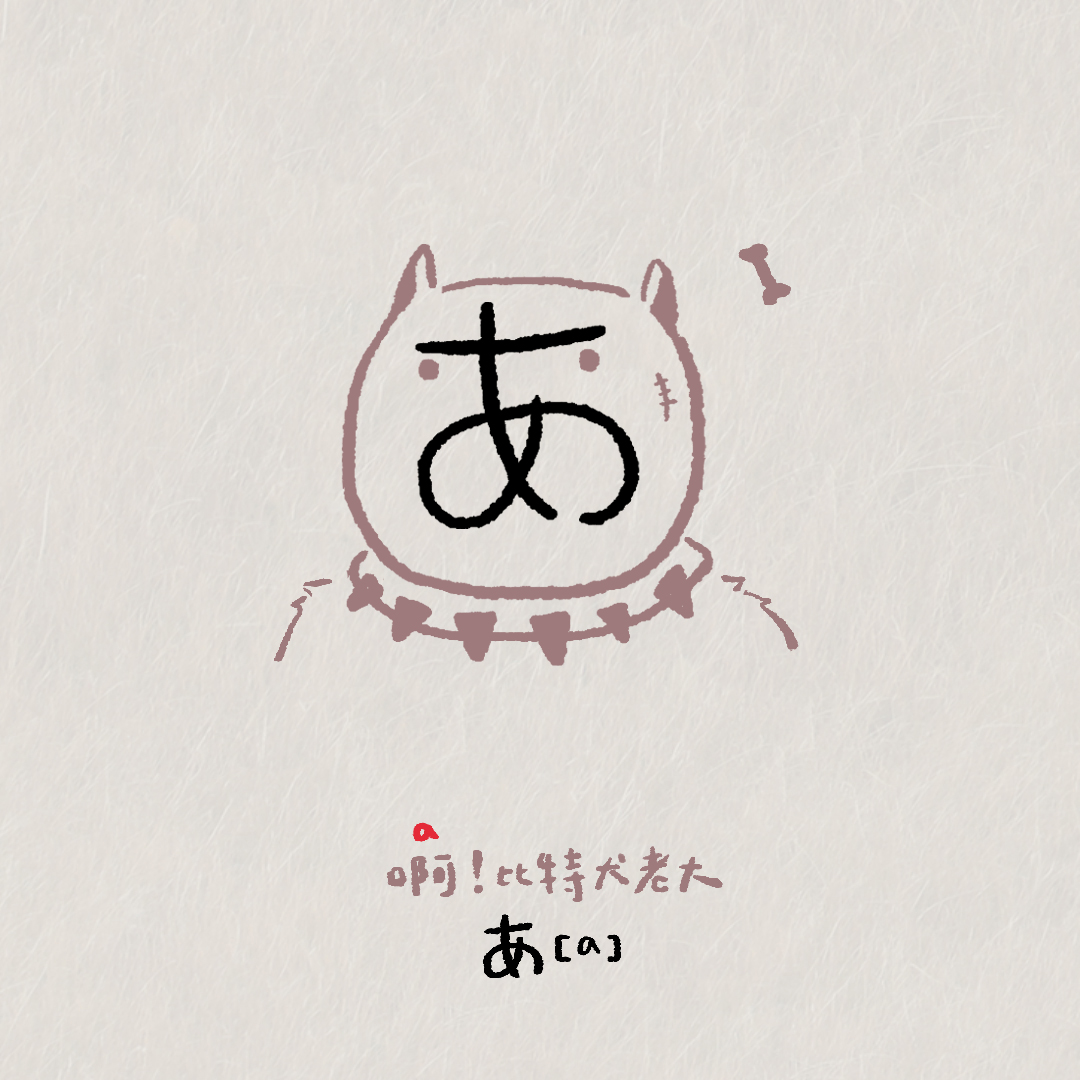 あ
a
啊！比特犬老大
あ[a]